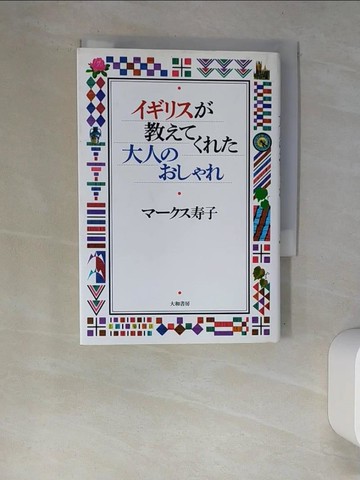 イギリスが
教えてくれた
大人の
おしゃれ
マークス寿子
大和書房